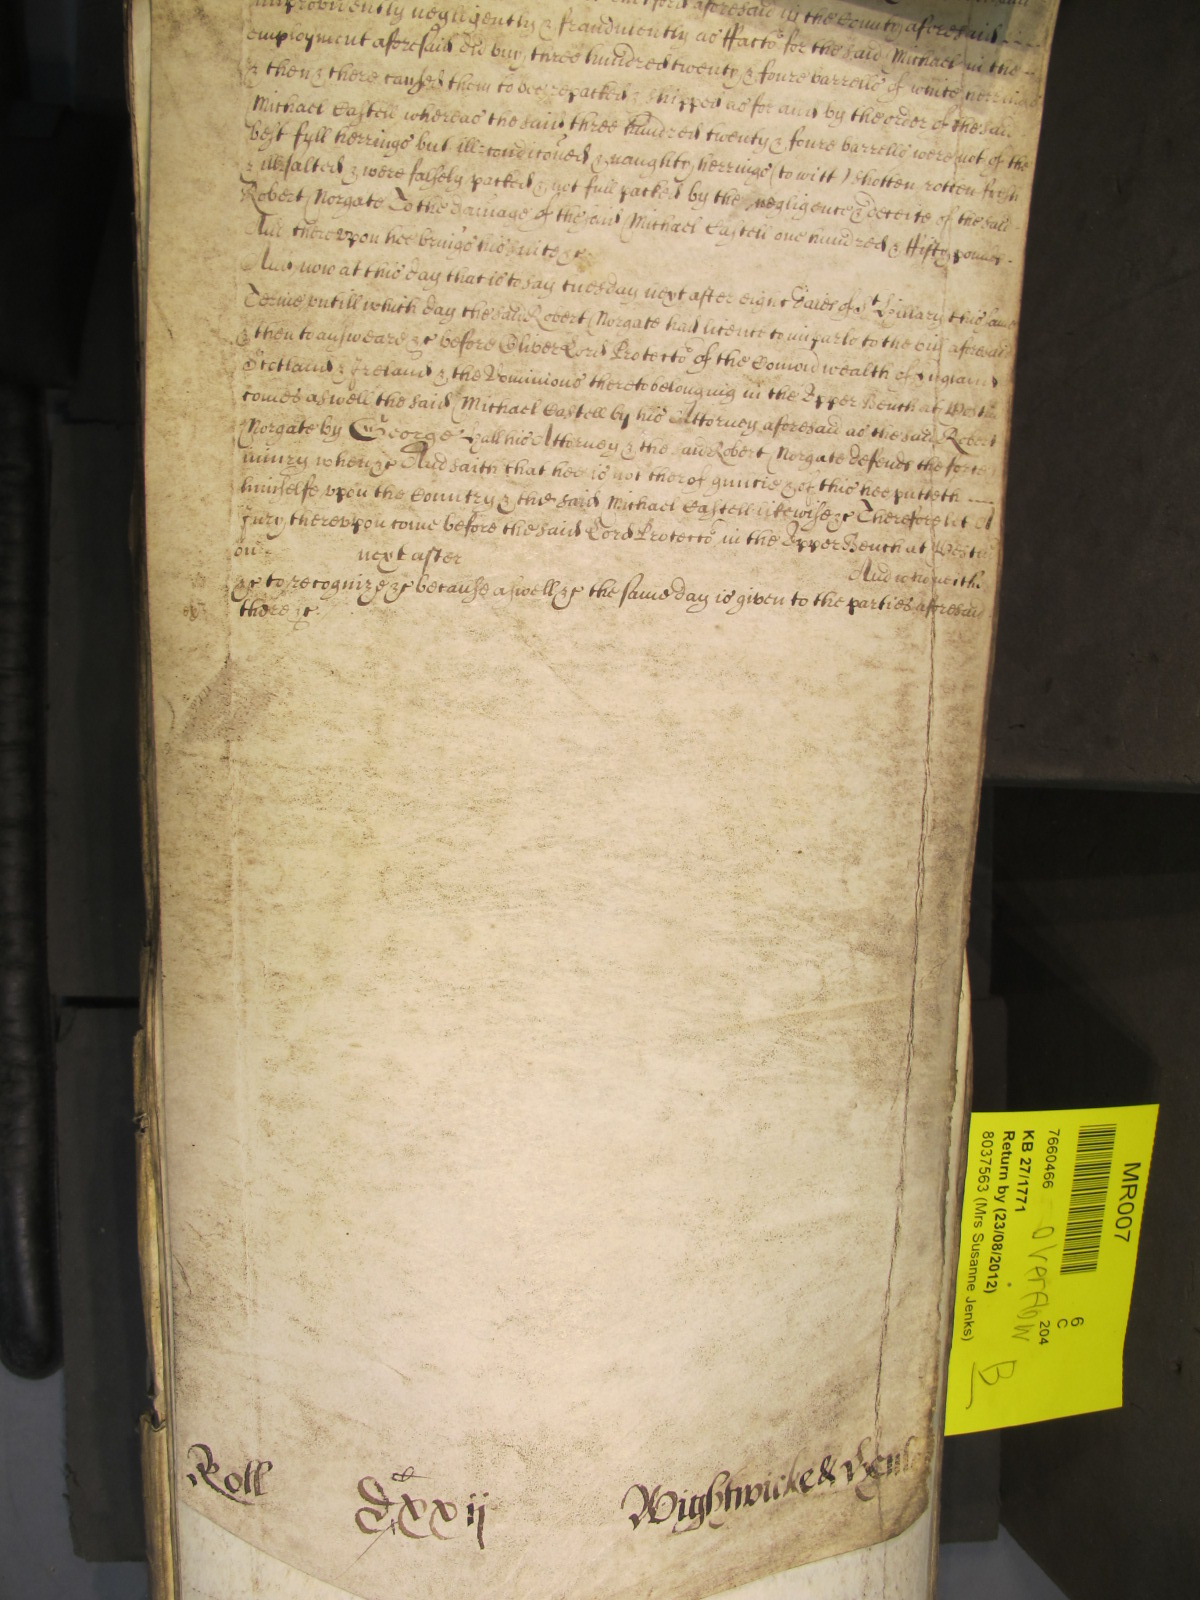 improvidently negligently & fraudulently as ffacto^r for the said Michael in the
employment aforesaid did buy three hundred twenty & foure barrells of white herrings
& then & there caused them to bee repacked & shipped as for and by the order of the said
Michael Castell whereas the said three hundred twenty & foure barrells were not of the
best full herrings but ill conditioned & naughty herrings (to witt) shotten rotten fresh
& ill salted & were falsely packed & not full packed by the negligence & deceite of the said
Robert Norgate To the damage of the said Michael Castell one hundred & ffifty pounds
And thereupon hee brings his suite &c.
And now at this day that is to say tuesday next after eight daies of S^t Hillary this same
Terme untill which day the said Robert Norgate had licence to imparle to the bill aforesaid
& then to answeare &c before Oliver Lord Protecto^r of the Comon wealth of England
Scotland & Ireland & the Dominions thereto belonging in the Upper Bench at Westm^r
comes aswell the said Michael Castell by his Attorney aforesaid as the said Robert
Norgate by George Hall his Attorney & the said Robert Norgate defends the force &
iniury when &c And saith that hee is not therof guiltie & of this hee putteth
himselfe upon the Country & the said Michael Castell likewise &c Therefore let A
Jury thereupon come before the said Lord Protecto^r in the Upper Bench at Westm^r
on next after And who neither
&c to recognize &c because aswell &c the same day is given to the parties aforesaid
there &c.
Roll Dxxij Wightwicke &
MR007
7660466
6
C
204
KB 27/1771
Overflow
Return by (23/08/2012)
8037563 (Mrs Susanne Jenks)
B